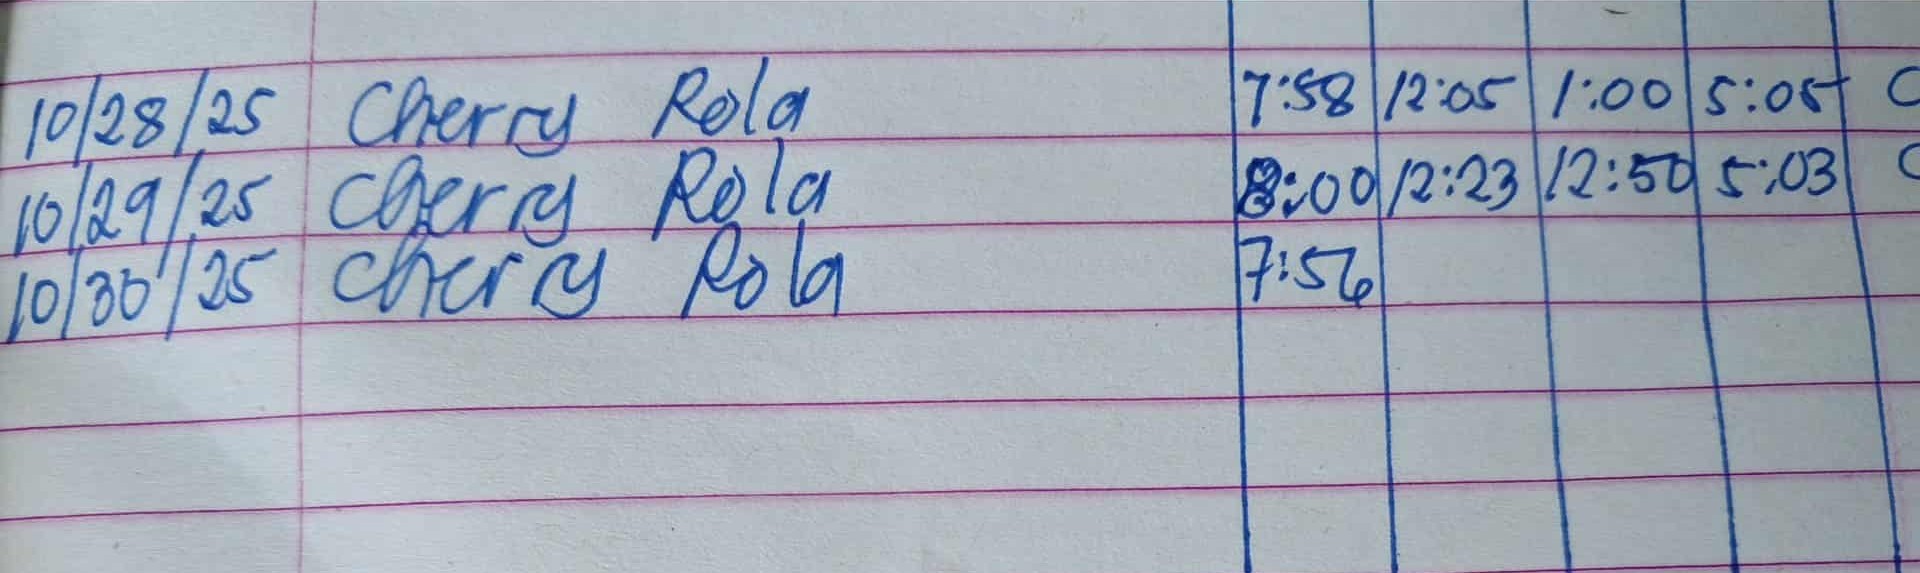 10/28/25 Cherry Rola 7:58 12:05 1:00 5:05 C
10/29/25 Cherry Rola 8:00 12:23 12:50 5:03 C
10/30/25 Cherry Rola 7:56